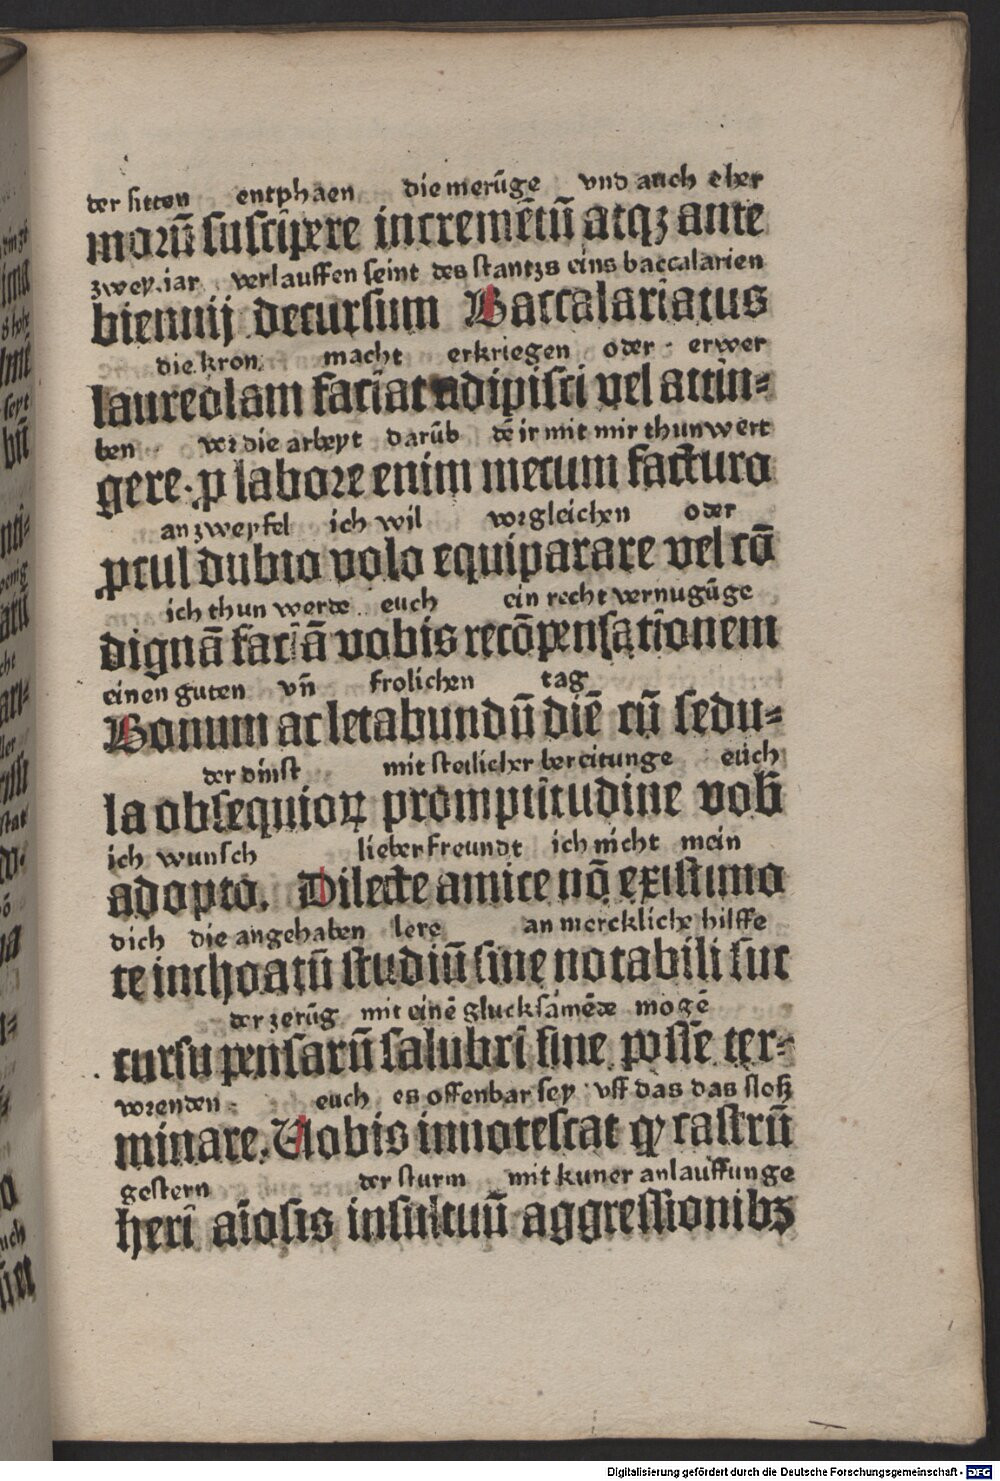 der sitton entphaen die merūge vnd auch eher
morū suscipere incremētū atqʒ ante
zwey.iar verlauffen seint des stantzs eins baccalarien
biennij decursum Baccalariatus
die kron macht erkriegen oder erwer
laureolam faciat adipisci vel attin⸗
ben vor die arbeyt darūb dē ir mit mir thun wert
gere. ꝓ labore enim mecum facturo
an zweyfel ich wil vorgleichen oder
ꝓcul dubio volo equiparare vel cō
ich thun werde euch ein recht vernugūge
dignā faciā vobis recōpensationem
einen guten vn̄ frolichen tag
Bonum ac letabundū diē cū sedu⸗
der dinst mit stetlicher bereitunge euch
la obsequioꝝ promptitudine vob̄
ich wunsch lieber freundt ich nicht mein
adopto. Dilecte amice nō existimo
dich die angehaben lere an merckliche hilffe
te inchoatū studiū sine notabili suc
der zerūg mit einē glucksamēde mogē
cursu pensarū salubri fine posse ter⸗
vorenden euch es offenbar sey vff das das sloß
minare. Uobis innotescat ꝙ castrū
gestern der sturm mit kuner anlauffunge
heri aīosis insultuū aggressionibʒ
Digitalisierung gefördert durch die Deutsche Forschungsgemeinschaft - DFG